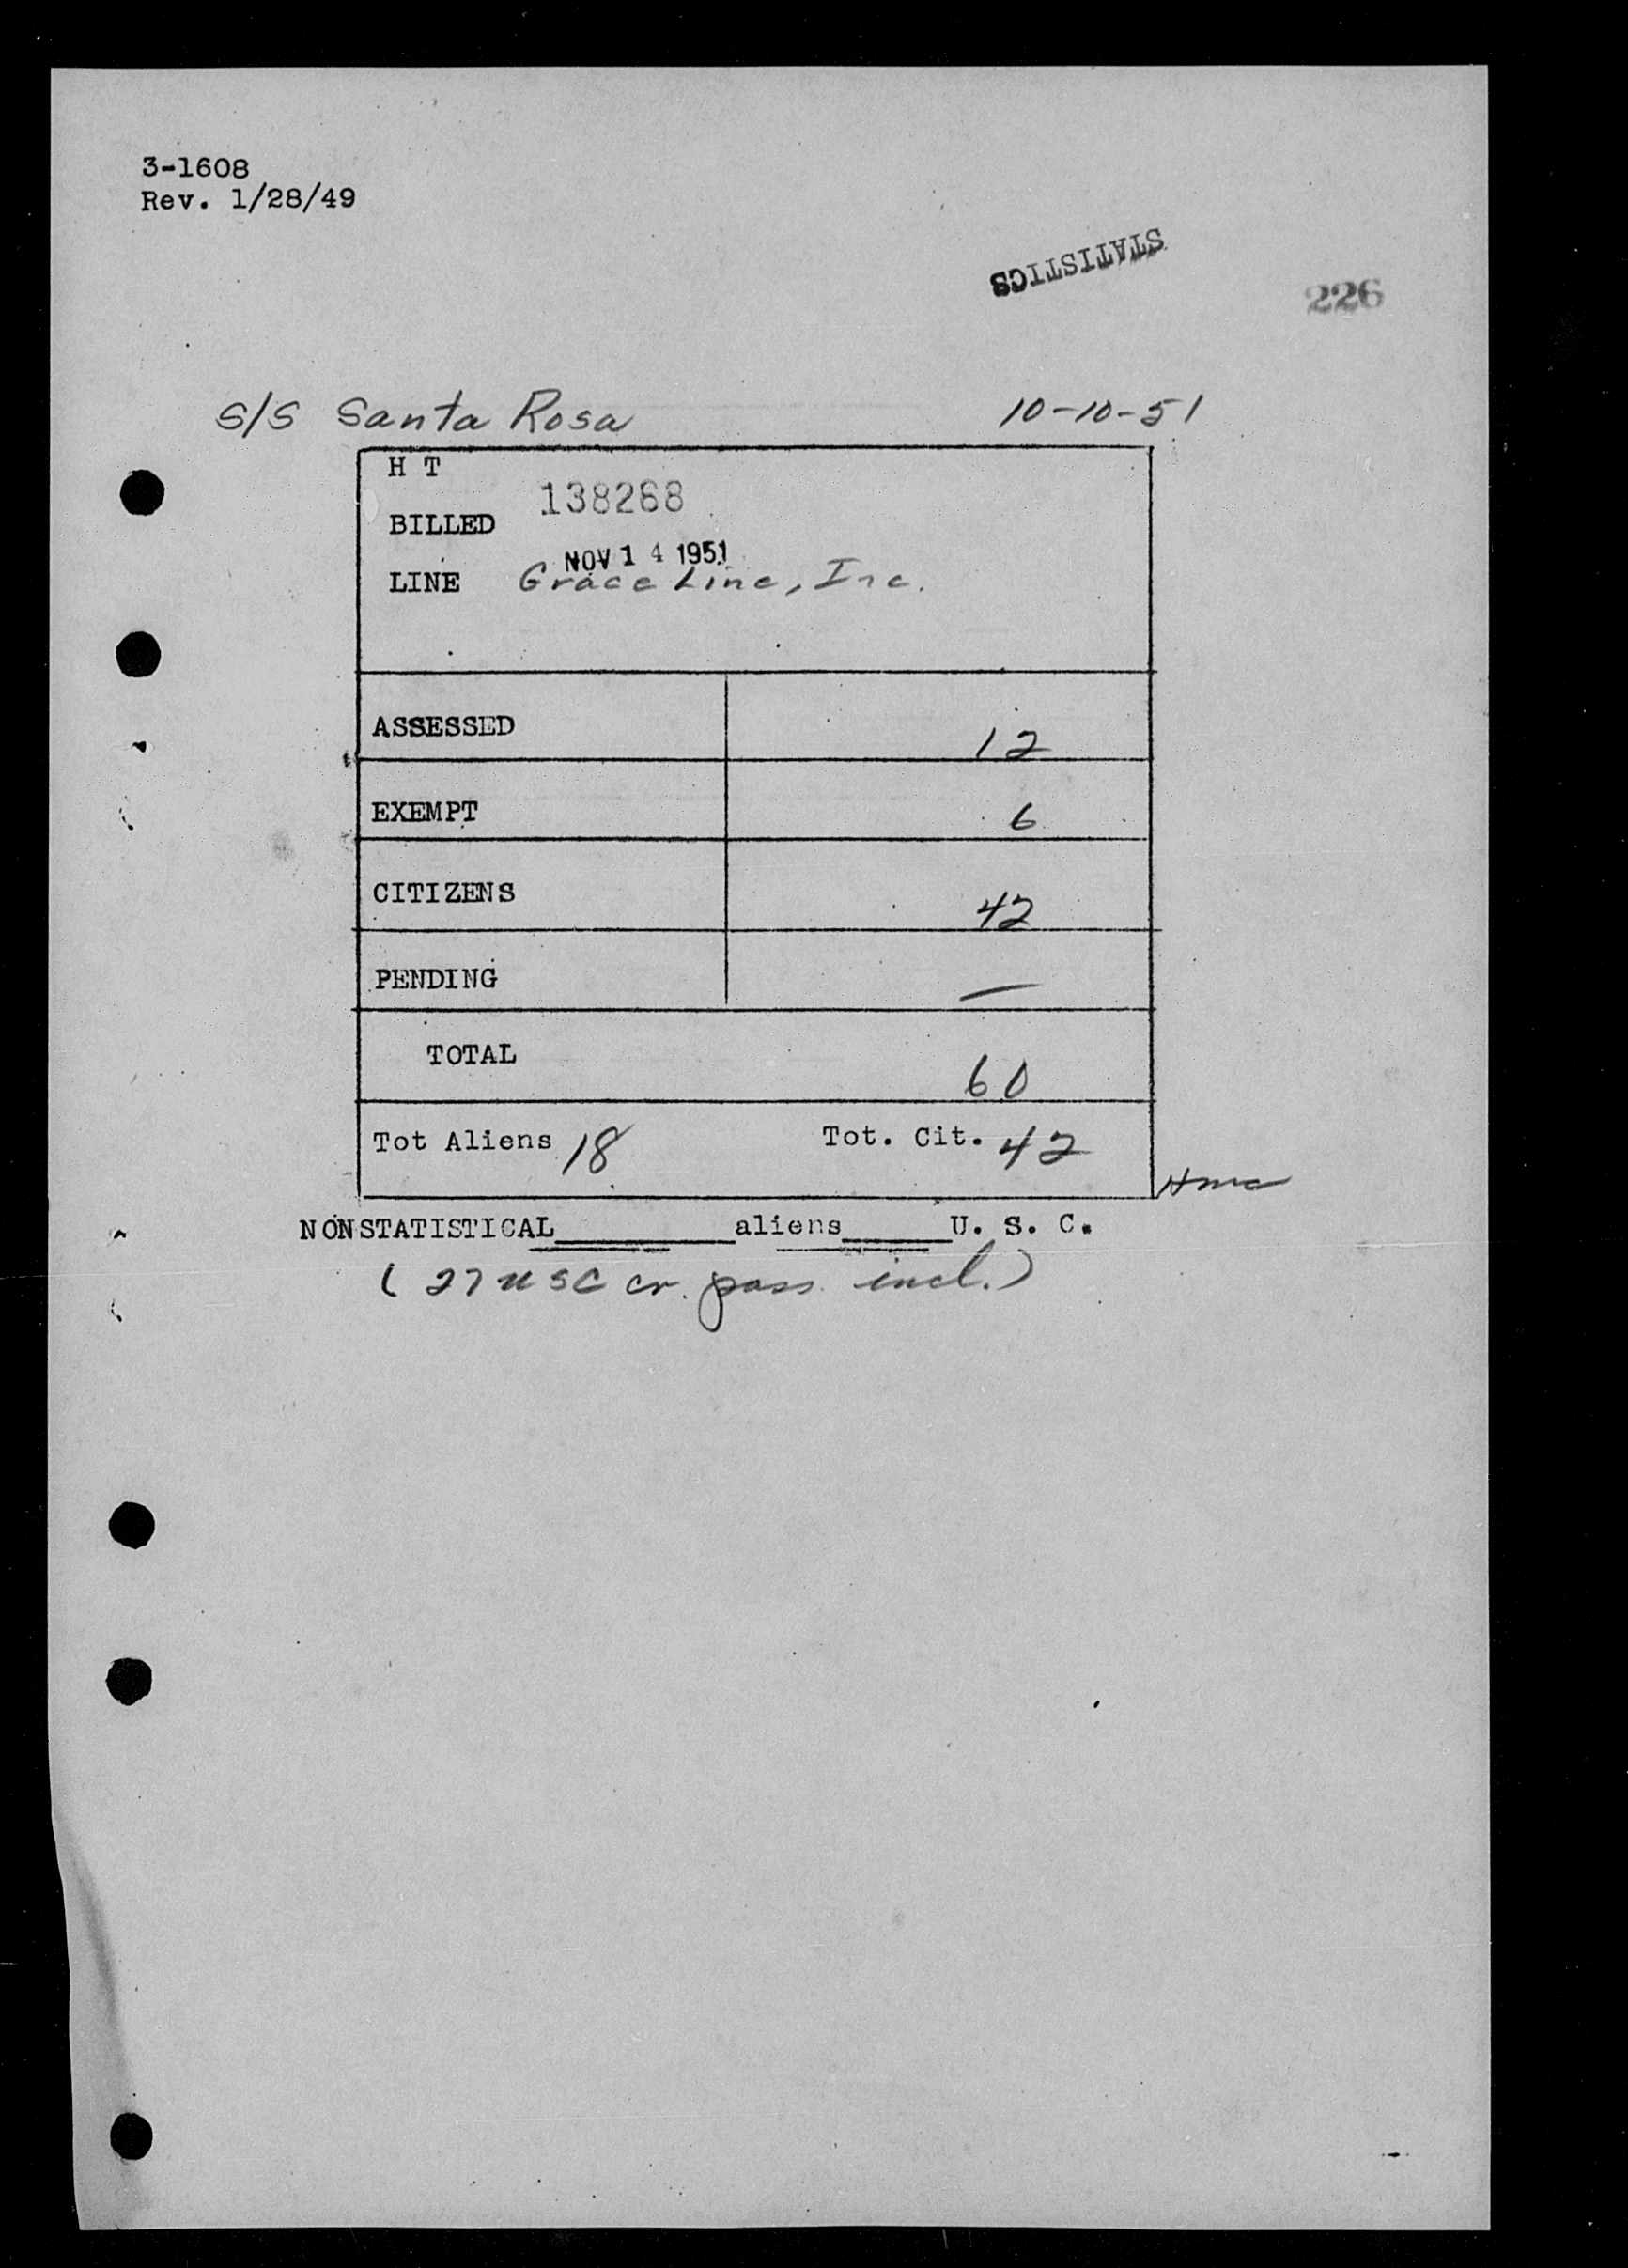 3-1608
Rev. 1/28/49
STATISTICS
226
S/S Santa Rosa 10-10-51
H T
138268
BILLED
NOV 14 1951
LINE Grace Line, Inc.
ASSESSED 12
EXEMPT 6
CITIZENS 42
PENDING —
TOTAL 60
Tot Aliens 18 Tot. Cit. 42
NONSTATISTICAL______aliens____U. S. C.
(27 USC cr. pass. incl.)